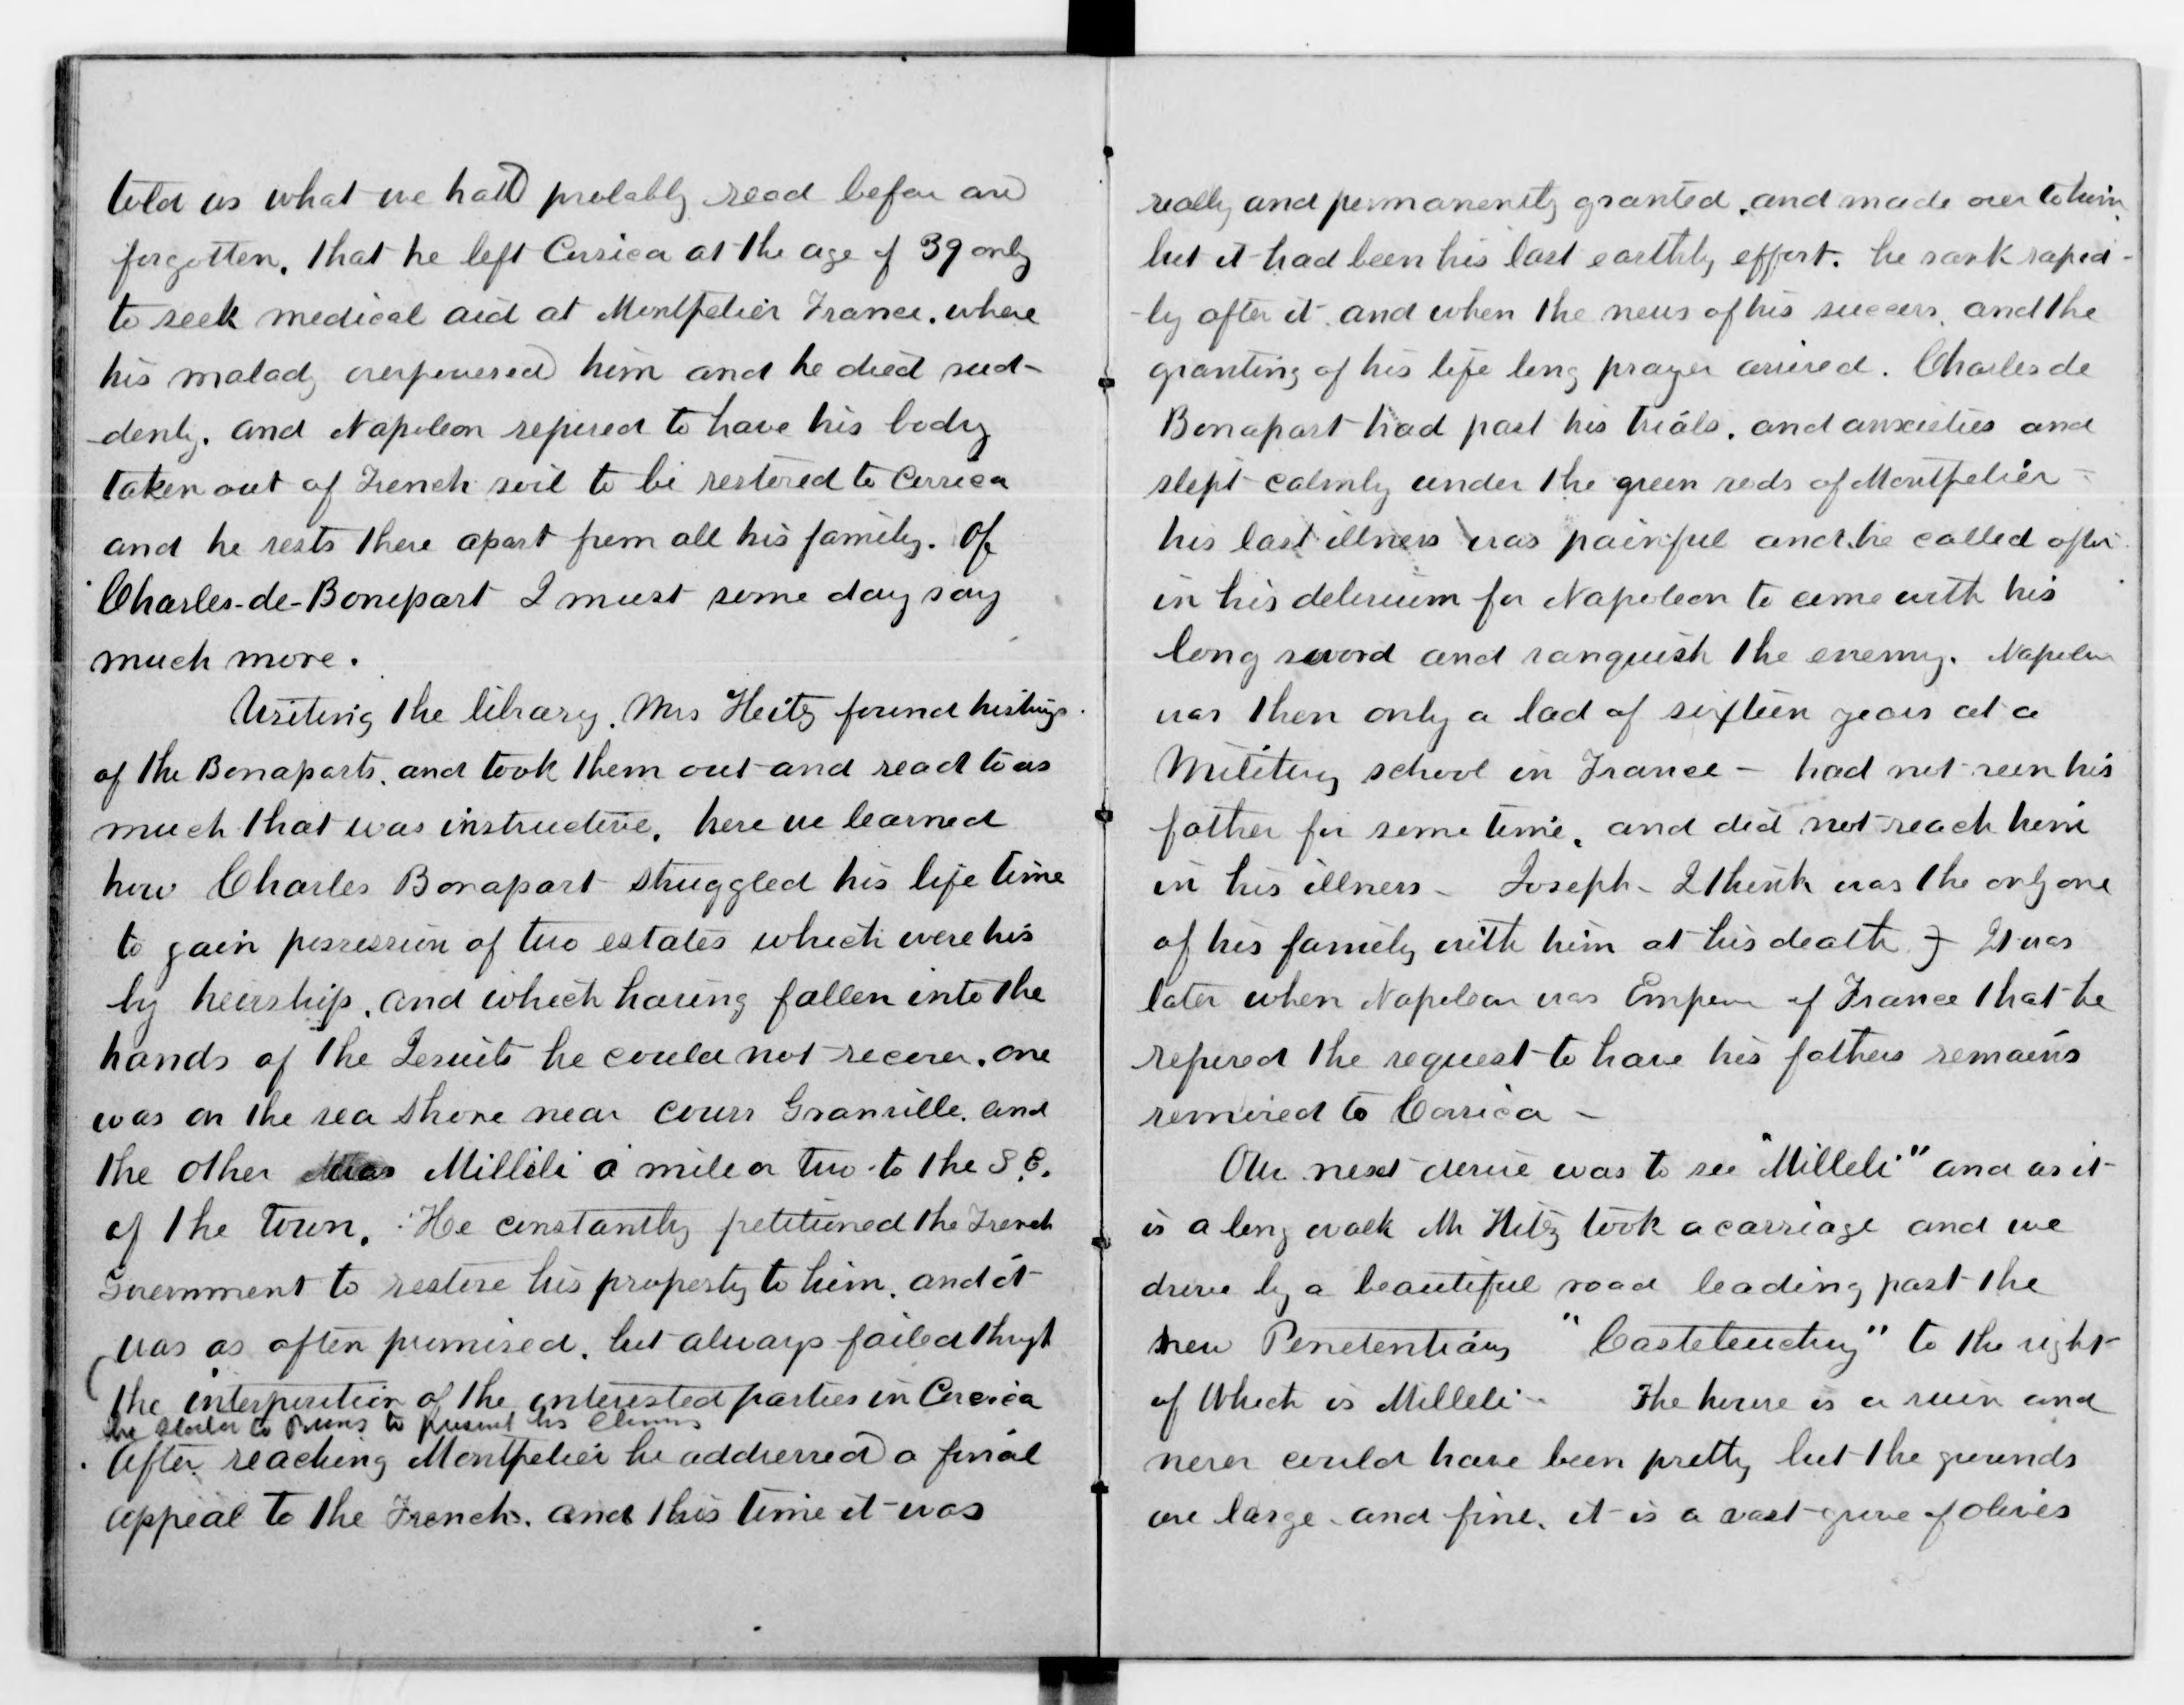 told us what we had probably read before and
forgotten, that he left Corsica at the age of 39 only
to seek medical aid at Montpelier France, where
his malady overpowered him and he died sud-
-denly, and Napoleon refused to have his body
taken out of French soil to be restored to Corsica
and he rests there apart from all his family. Of
Charles-de-Bonepart I must some day say
much more.
Visiting the library, Mrs Heitz found histories
of the Bonaparts, and took them out and read to us
much that was instructive, here we learned
how Charles Bonapart struggled his life time
to gain possession of two estates which were his
by heirship, and which having fallen into the
hands of the Jesuits he could not recover, one
was on the sea shore near cours Granville, and
the other was Millili a mile or two to the S.E.
of the town. He constantly petitioned the French
Government to restore his property to him, and it
was as often promised, but always failed through
the interposition of the interested parties in Corsica
he started to to present his claims
After reaching Montpelier he addressed a final
appeal to the French, and this time it was
really and permanently granted, and made over to him,
but it had been his last earthly effort. he sank rapid-
-ly after it, and when the news of his success, and the
granting of his life long prayer arrived. Charles de
Bonapart had past his trials, and anxieties and
slept calmly under the green sods of Montpelier -
his last illness was painful and he called often
in his delirium for Napoleon to come with his
long sword and vanquish the enemy. Napoleon
was then only a lad of sixteen years at a
Military school in France - had not seen his
father for some time, and did not reach him
in his illness - Joseph - I think was the only one
of his family with him at his death It was
later when Napoleon was Emperor of France that he
refused the request to have his fathers remains
removed to Corsica -
Our next desire was to see "Milleli" and as it
is a long walk Mr Hitz took a carriage and we
drove by a beautiful road leading past the
new Penetentiary "Casteleuchy" to the right
of Which is Milleli - The house is a ruin and
never could have been pretty but the grounds
are large and fine, it is a vast grove of olives